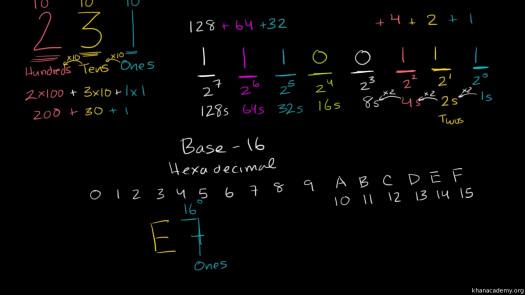 10 10 10
128 + 64 + 32 + 4 + 2 + 1
2 3 1
1 1 1 0 0 1 1 1
x10 x10
Hundreds Tens Ones
2^7 2^6 2^5 2^4 2^3 2^2 2^1 2^0
2x100 + 3x10 + 1x1
128s 64s 32s 16s 8s x2 4s x2 2s x2 1s
200 + 30 + 1
Twos
Base-16
Hexadecimal
0 1 2 3 4 5 6 7 8 9 A B C D E F
10 11 12 13 14 15
16^0
E 7
Ones
khanacademy.org